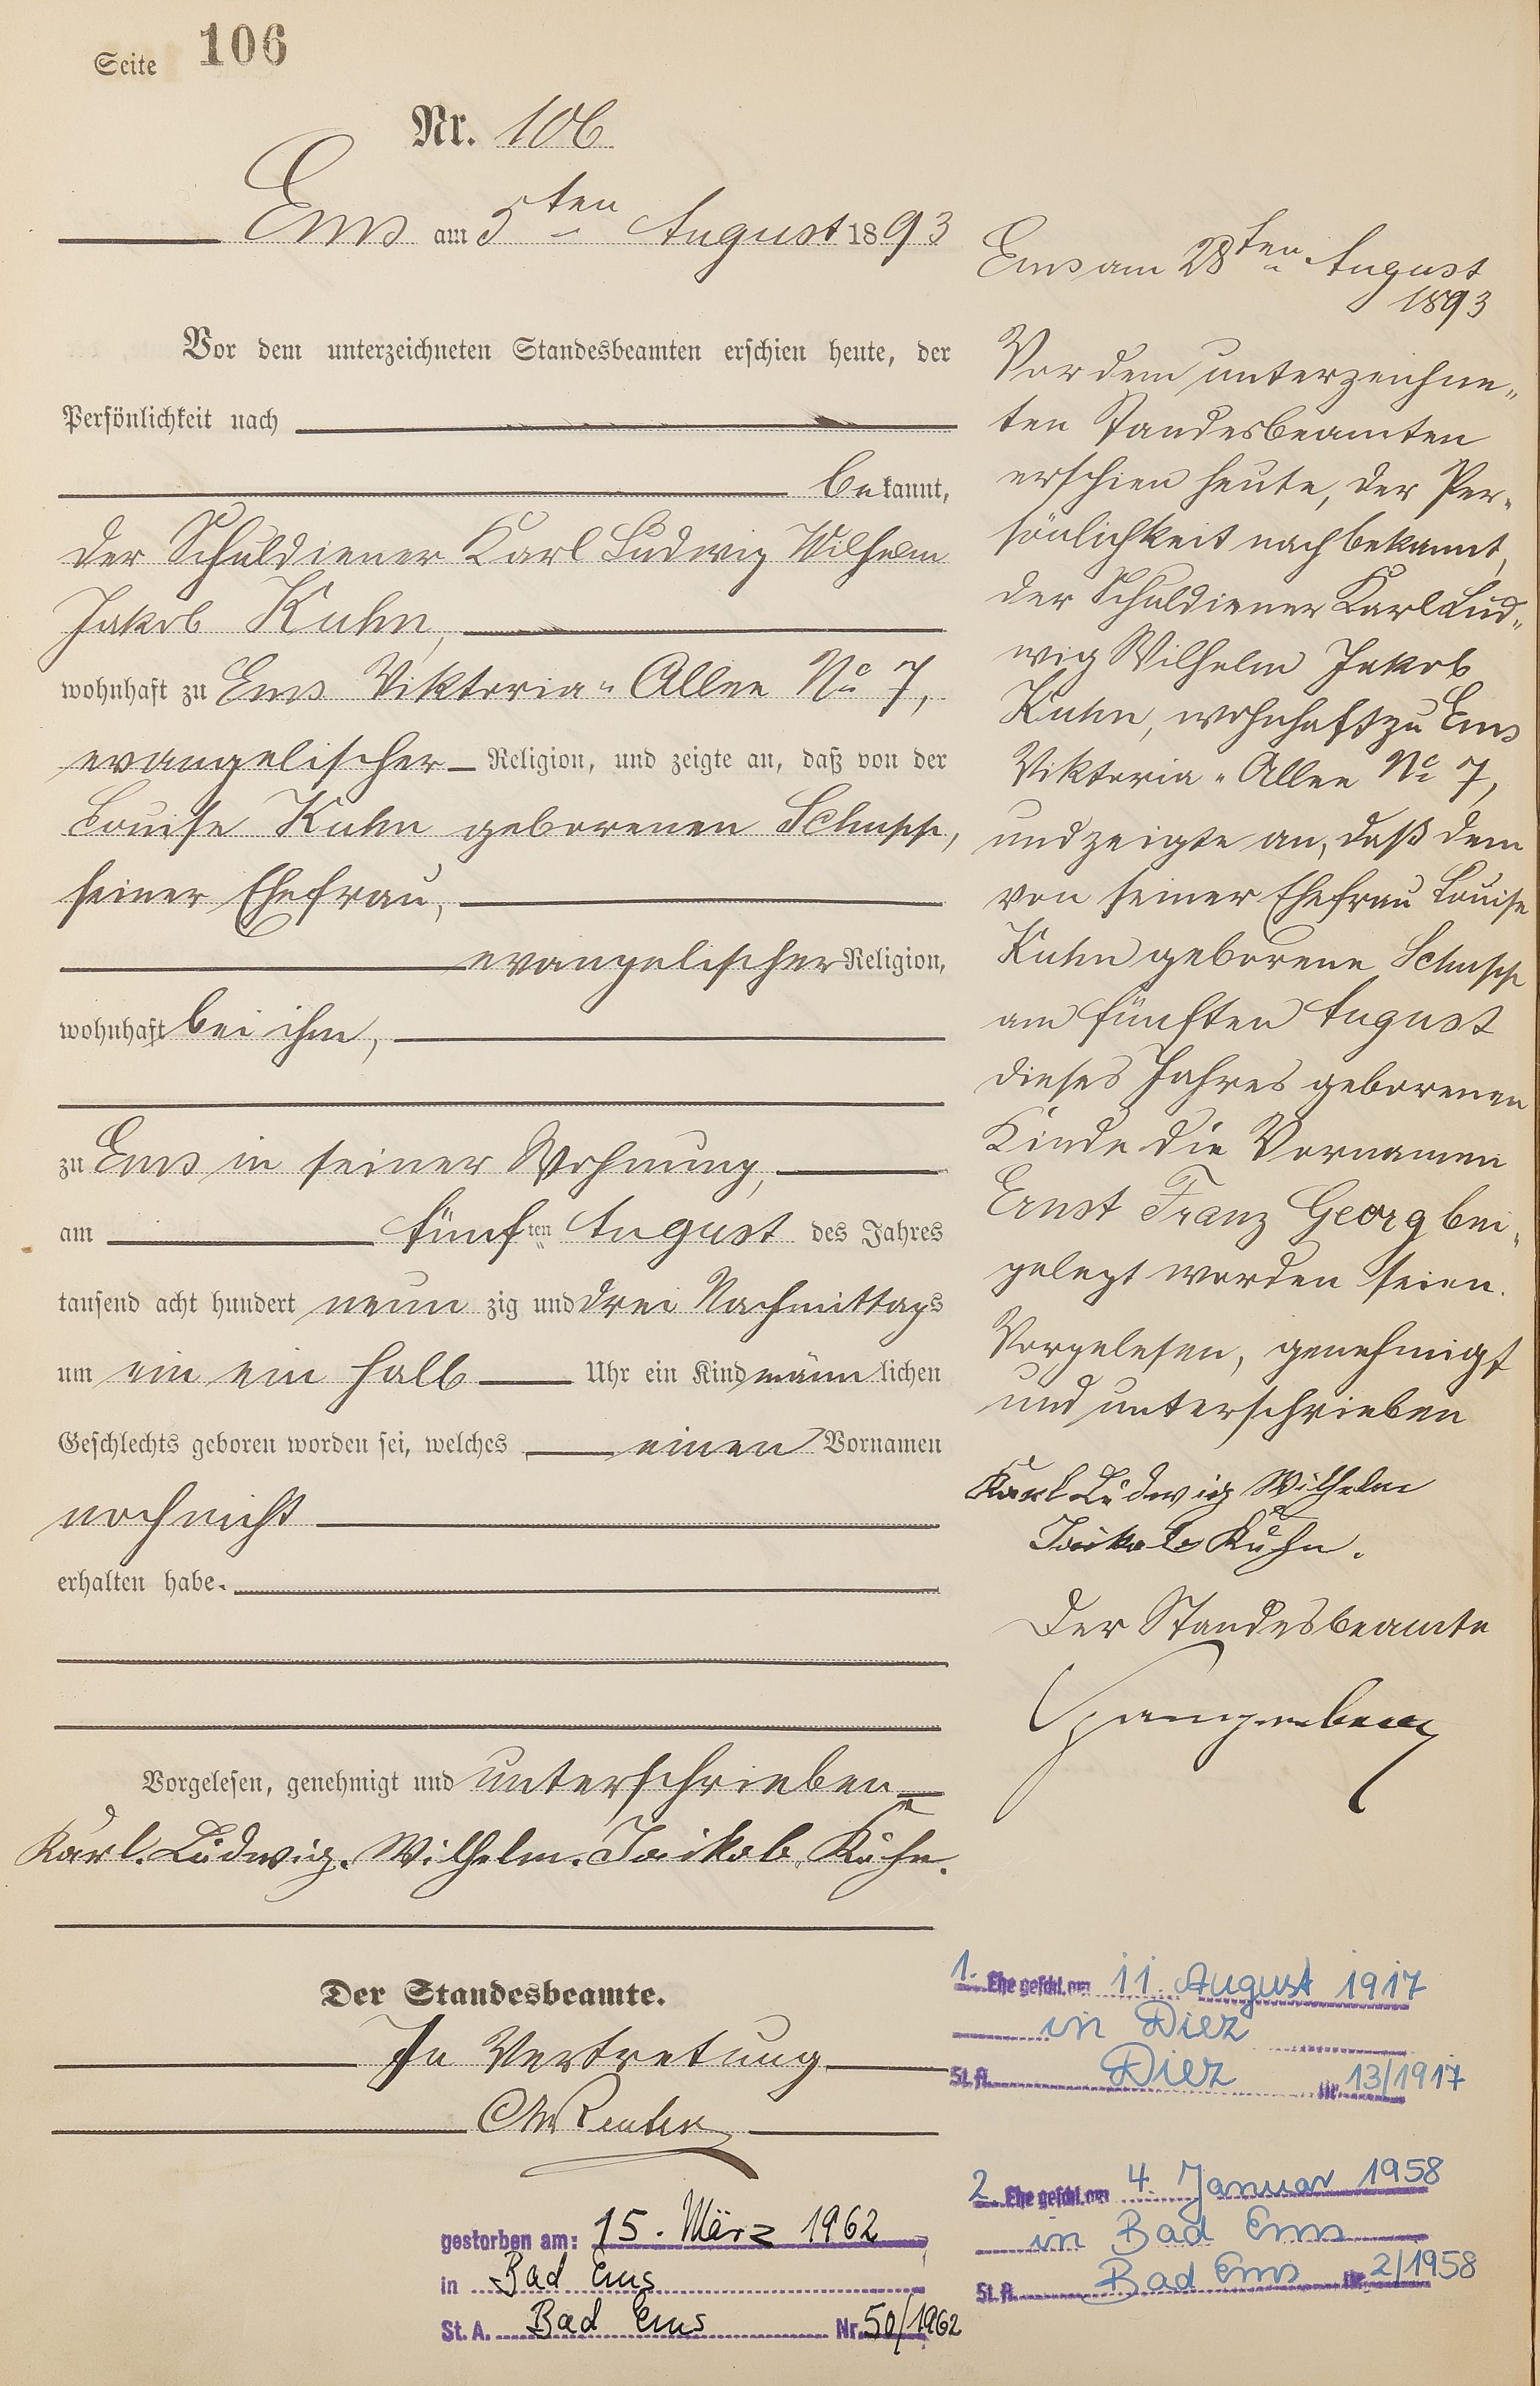 Seite 106
Nr. 106
Ems am 5ten August 1893
Vor dem unterzeichneten Standesbeamten erschien heute, der
Persönlichkeit nach
bekannt,
der Schuldiener Karl Ludwig Wilhelm
Jakob Kuhn,
wohnhaft zu Ems Viktoria-Allee No 7,
evangelischer Religion, und zeigte an, daß von der
Louise Kuhn geborenen Schupp,
seiner Ehefrau,
evangelischer Religion,
wohnhaft bei ihm,
zu Ems in seiner Wohnung,
am fünften August des Jahres
tausend acht hundert neunzig und drei Nachmittags
um ein ein halb Uhr ein Kind männlichen
Geschlechts geboren worden sei, welches einen Vornamen
noch nicht
erhalten habe.
Vorgelesen, genehmigt und unterschrieben
Karl. Ludwig. Wilhelm. Jakob. Kuhn.
Der Standesbeamte.
In Vertretung
gestorben am: 15. März 1962
in Bad Ems
St. A. Bad Ems Nr. 50/1962
Ems am 28ten August
1893
Vor dem unterzeichne-
ten Standesbeamten
erschien heute, der Per-
sönlichkeit nach bekannt,
der Schuldiener Karl Lud-
wig Wilhelm Jakob
Kuhn, wohnhaft zu Ems
Viktoria-Allee No 7,
und zeigte an, daß dem
von seiner Ehefrau Louise
Kuhn geborene Schupp
am fünften August
dieses Jahres geborenen
Kinde die Vornamen
Ernst Franz Georg bei-
gelegt worden seien.
Vorgelesen, genehmigt
und unterschrieben
Karl Ludwig Wilhelm
Jakob Kuhn.
Der Standesbeamte
Spangenberg
1. Ehe geschl. am 11. August 1917
in Diez
St. A. Diez Nr. 13/1917
2. Ehe geschl. am 4. Januar 1958
in Bad Ems
St. A. Bad Ems Nr. 2/1958